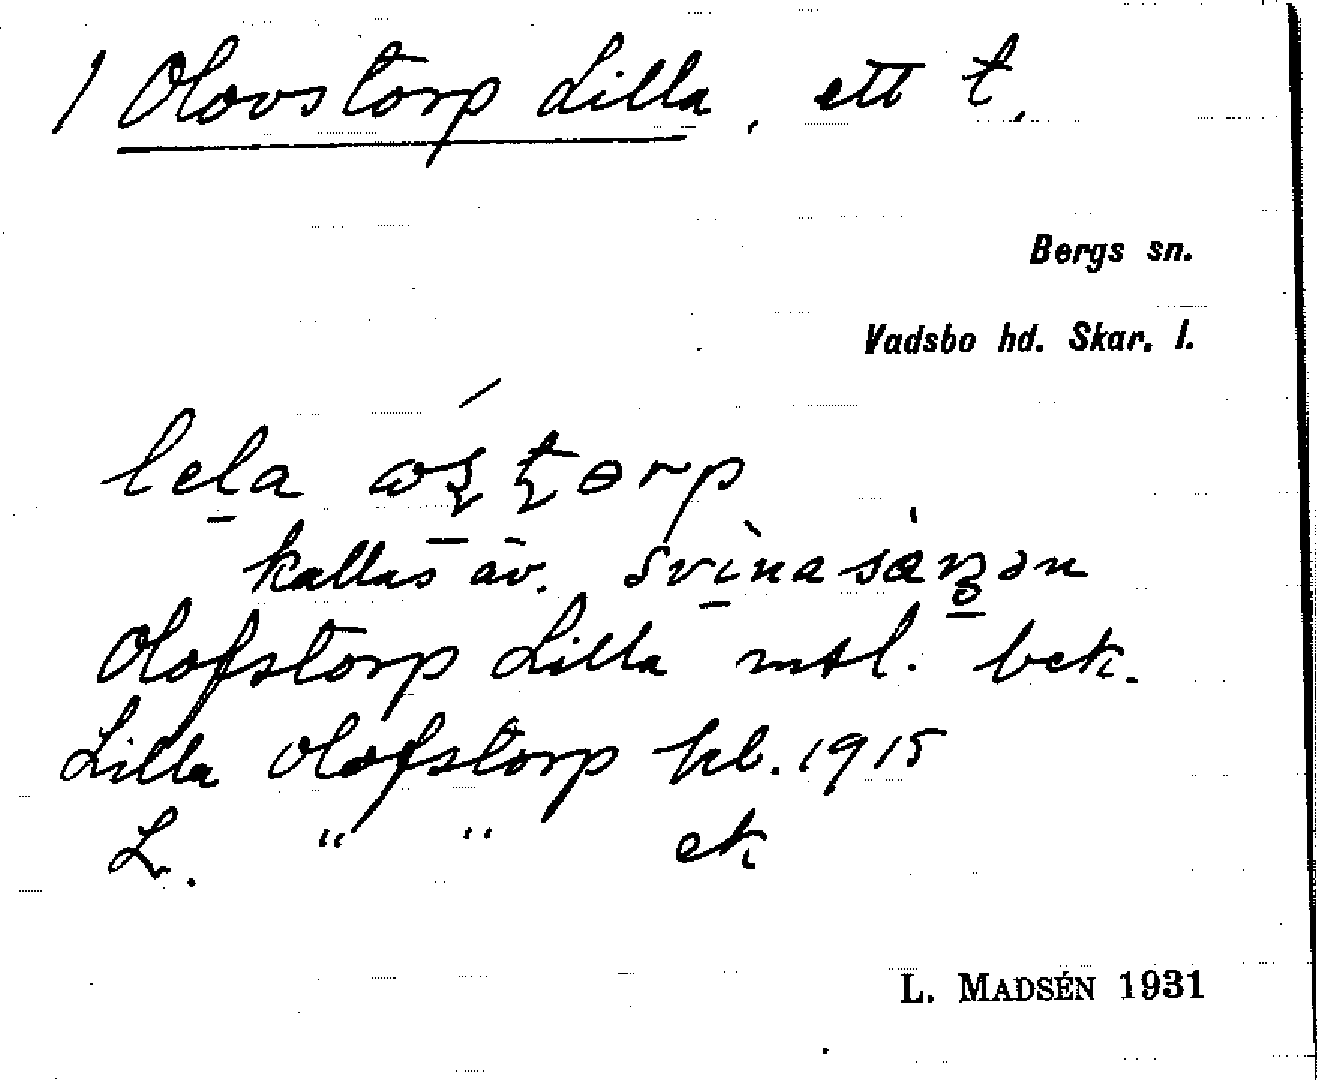 1 Olovstorp Lilla, ett t.
Bergs sn.
Vadsbo hd. Skar. l.
lela
kallas äv. svinasæŋən
Olofstorp Lilla mtl. bek.
Lilla Olofstorp hb. 1915
L. " " ek
L. MADSÉN 1931